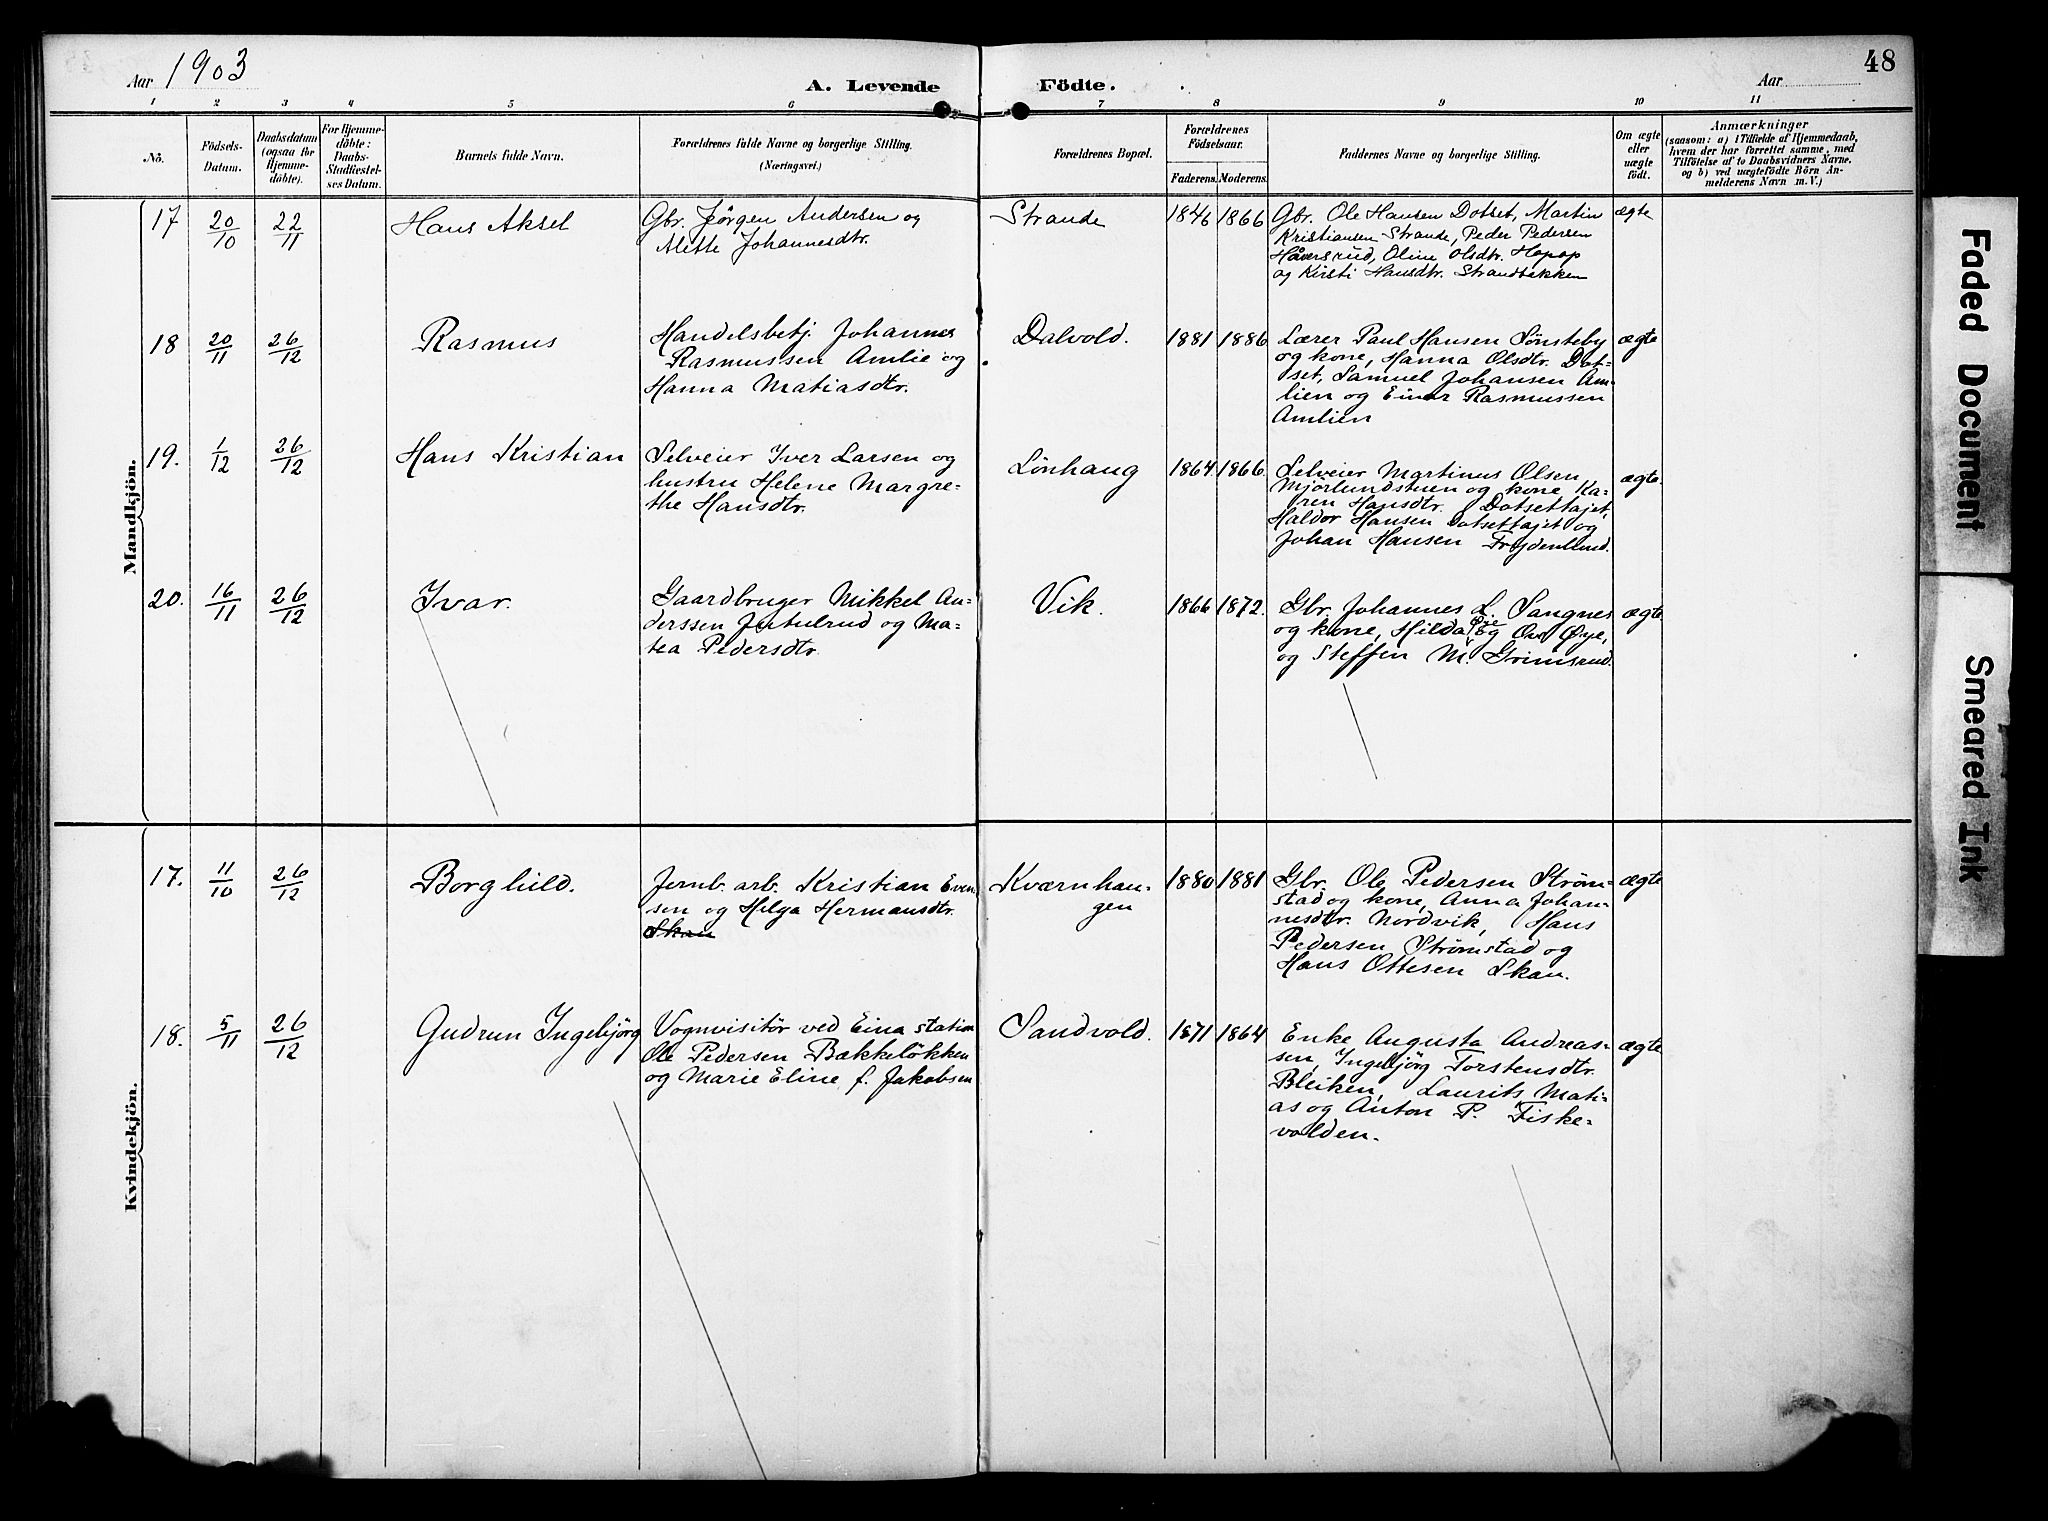 Aar 1903
A. Levende Födte.
Aar
48
1 2 3 4 5 6 7 8 9 10 11
No.
Födsels-
Datum.
Daabsdatum
(ogsaa for
Hjemme-
döbte).
For Hjemme-
döbte:
Daabs-
Stadfæstel-
ses Datum.
Barnets fulde Navn.
Forældrenes fulde Navne og borgerlige Stilling.
(Næringsvei.)
Forældrenes Bopæl.
Forældrenes
Födselsaar.
Faderens. Moderens.
Faddernes Navne og borgerlige Stilling.
Om ægte
eller
uægte
födt.
Anmærkninger
(saasom: a) i Tilfælde af Hjemmedaab,
hvem der har forrettet samme, med
Tilföielse af to Daabsvidners Navne,
og b) ved uægtefödte Börn An-
melderens Navn m. V.)
Mandkjön.
17 20/10 22/11 Hans Aksel
Gbr. Jørgen Andersen og
Alette Johannesdtr.
Strande 1846 1866
Gbr. Ole Hansen Dotset, Martin
Kristiansen Strande, Peder Pedersen
Håversrud, Oline Olsdtr. Hopop
og Kirsti Hansdtr. Strandbekken
ægte
18 20/11 26/12 Rasmus
Handelsbetj. Johannes
Rasmussen Amlie og
Hanna Matiasdtr.
Dalvold. 1881 1886
Lærer Paul Hansen Sønsteby
og kone, Hanna Olsdtr. Dot-
set, Samuel Johansen Am-
lien og Einar Rasmussen
Amlien
ægte
19. 1/12 26/12 Hans Kristian
Selveier Iver Larsen og
hustru Helene Margre-
the Hansdtr.
Lönhaug 1864 1866.
Selveier Martinus Olsen
Mjörlundstuen og kone Ka-
ren Hansdtr. Dotsettajet,
Haldor Hansen Dotsettajet og
Johan Hansen Frydenlund.
ægte.
20. 16/11 26/12 Ivar.
Gaardbruger Mikkel An-
derssen Jutulrud og Ma-
tea Pedersdtr.
Vik. 1866 1872.
Gbr. Johannes L. Sangnes
og kone, Hilda Øie og Ove Øye,
og Steffen M. Grimsrud.
ægte.
Kvindekjön.
17. 11/10 26/12 Borghild.
Jernb. arb. Kristian Even-
sen og Helga Hermansdtr.
Skau
Kværnhau-
gen
1880 1881
Gbr. Ole Pedersen Strøm-
stad og kone, Anna Johan-
nesdtr. Nordvik, Hans
Pedersen Strømstad og
Hans Ottesen Skau.
ægte
18. 5/11 26/12 Gudrun Ingebjörg
Vognvisitör ved Eina station
Ole Pedersen Bækkelökken
og Marie Eline f. Jakobsen
Sandvold. 1871 1864
Enke Augusta Andreas-
sen, Ingebjörg Torstensdtr.
Bleiken, Laurits Mati-
as og Anton P. Fiske-
volden.
ægte
Faded Document
Smeared Ink